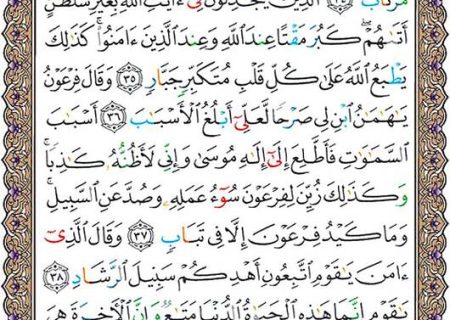 مُّرْتَابٌ ٣٤ ٱلَّذِينَ يُجَٰدِلُونَ فِىٓ ءَايَٰتِ ٱللَّهِ بِغَيْرِ سُلْطَٰنٍ
أَتَىٰهُمْ ۖ كَبُرَ مَقْتًا عِندَ ٱللَّهِ وَعِندَ ٱلَّذِينَ ءَامَنُوا۟ ۚ كَذَٰلِكَ
يَطْبَعُ ٱللَّهُ عَلَىٰ كُلِّ قَلْبِ مُتَكَبِّرٍ جَبَّارٍ ٣٥ وَقَالَ فِرْعَوْنُ
يَٰهَٰمَٰنُ ٱبْنِ لِى صَرْحًا لَّعَلِّىٓ أَبْلُغُ ٱلْأَسْبَٰبَ ٣٦ أَسْبَٰبَ
ٱلسَّمَٰوَٰتِ فَأَطَّلِعَ إِلَىٰٓ إِلَٰهِ مُوسَىٰ وَإِنِّى لَأَظُنُّهُۥ كَٰذِبًا ۚ
وَكَذَٰلِكَ زُيِّنَ لِفِرْعَوْنَ سُوٓءُ عَمَلِهِۦ وَصُدَّ عَنِ ٱلسَّبِيلِ ۚ
وَمَا كَيْدُ فِرْعَوْنَ إِلَّا فِى تَبَابٍ ٣٧ وَقَالَ ٱلَّذِىٓ
ءَامَنَ يَٰقَوْمِ ٱتَّبِعُونِ أَهْدِكُمْ سَبِيلَ ٱلرَّشَادِ ٣٨
يَٰقَوْمِ إِنَّمَا هَٰذِهِ ٱلْحَيَوٰةُ ٱلدُّنْيَا مَتَٰعٌ وَإِنَّ ٱلْءَاخِرَةَ هِىَ